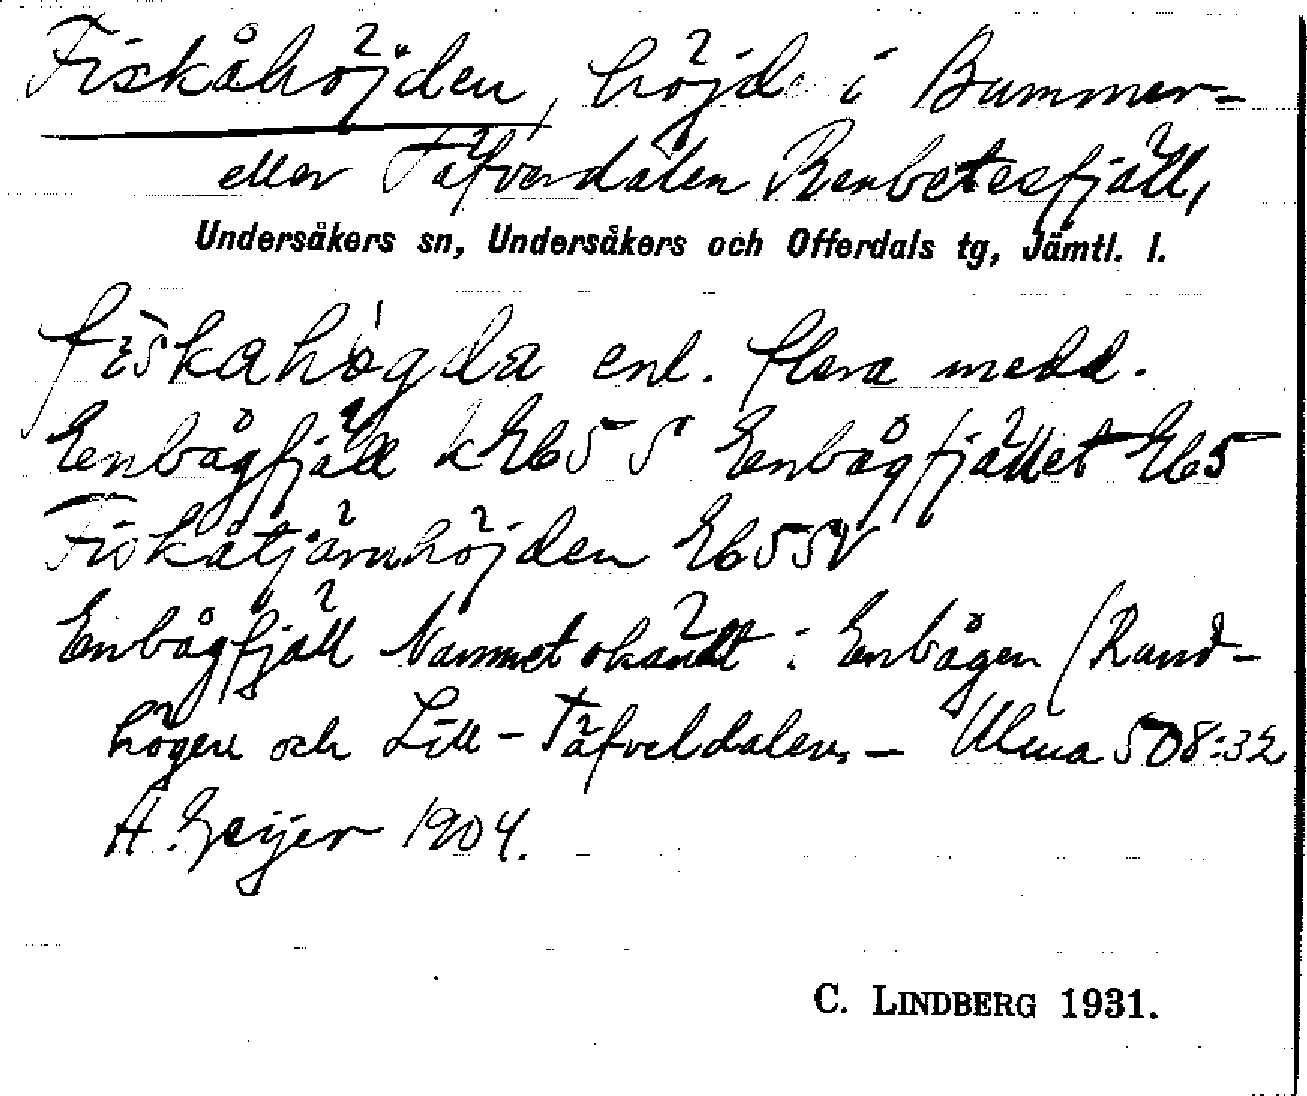 Fiskåhöjden, höjd i Bummer-
eller Täfverdalen Renbetesfjäll,
Undersåkers sn, Undersåkers och Offerdals tg, Jämtl. l.
fiskahögda enl. flera medd.
Enbågfjäll k Eb5 S Enbågfjället Eb5
Fiskåtjärnhöjden Eb5 SV
Enbågfjäll Namnet okändt i Enbågen (Rund-
högen och Lill-Täfveldalen. – Ulma 508:32
A. Geijer 1904.
C. LINDBERG 1931.